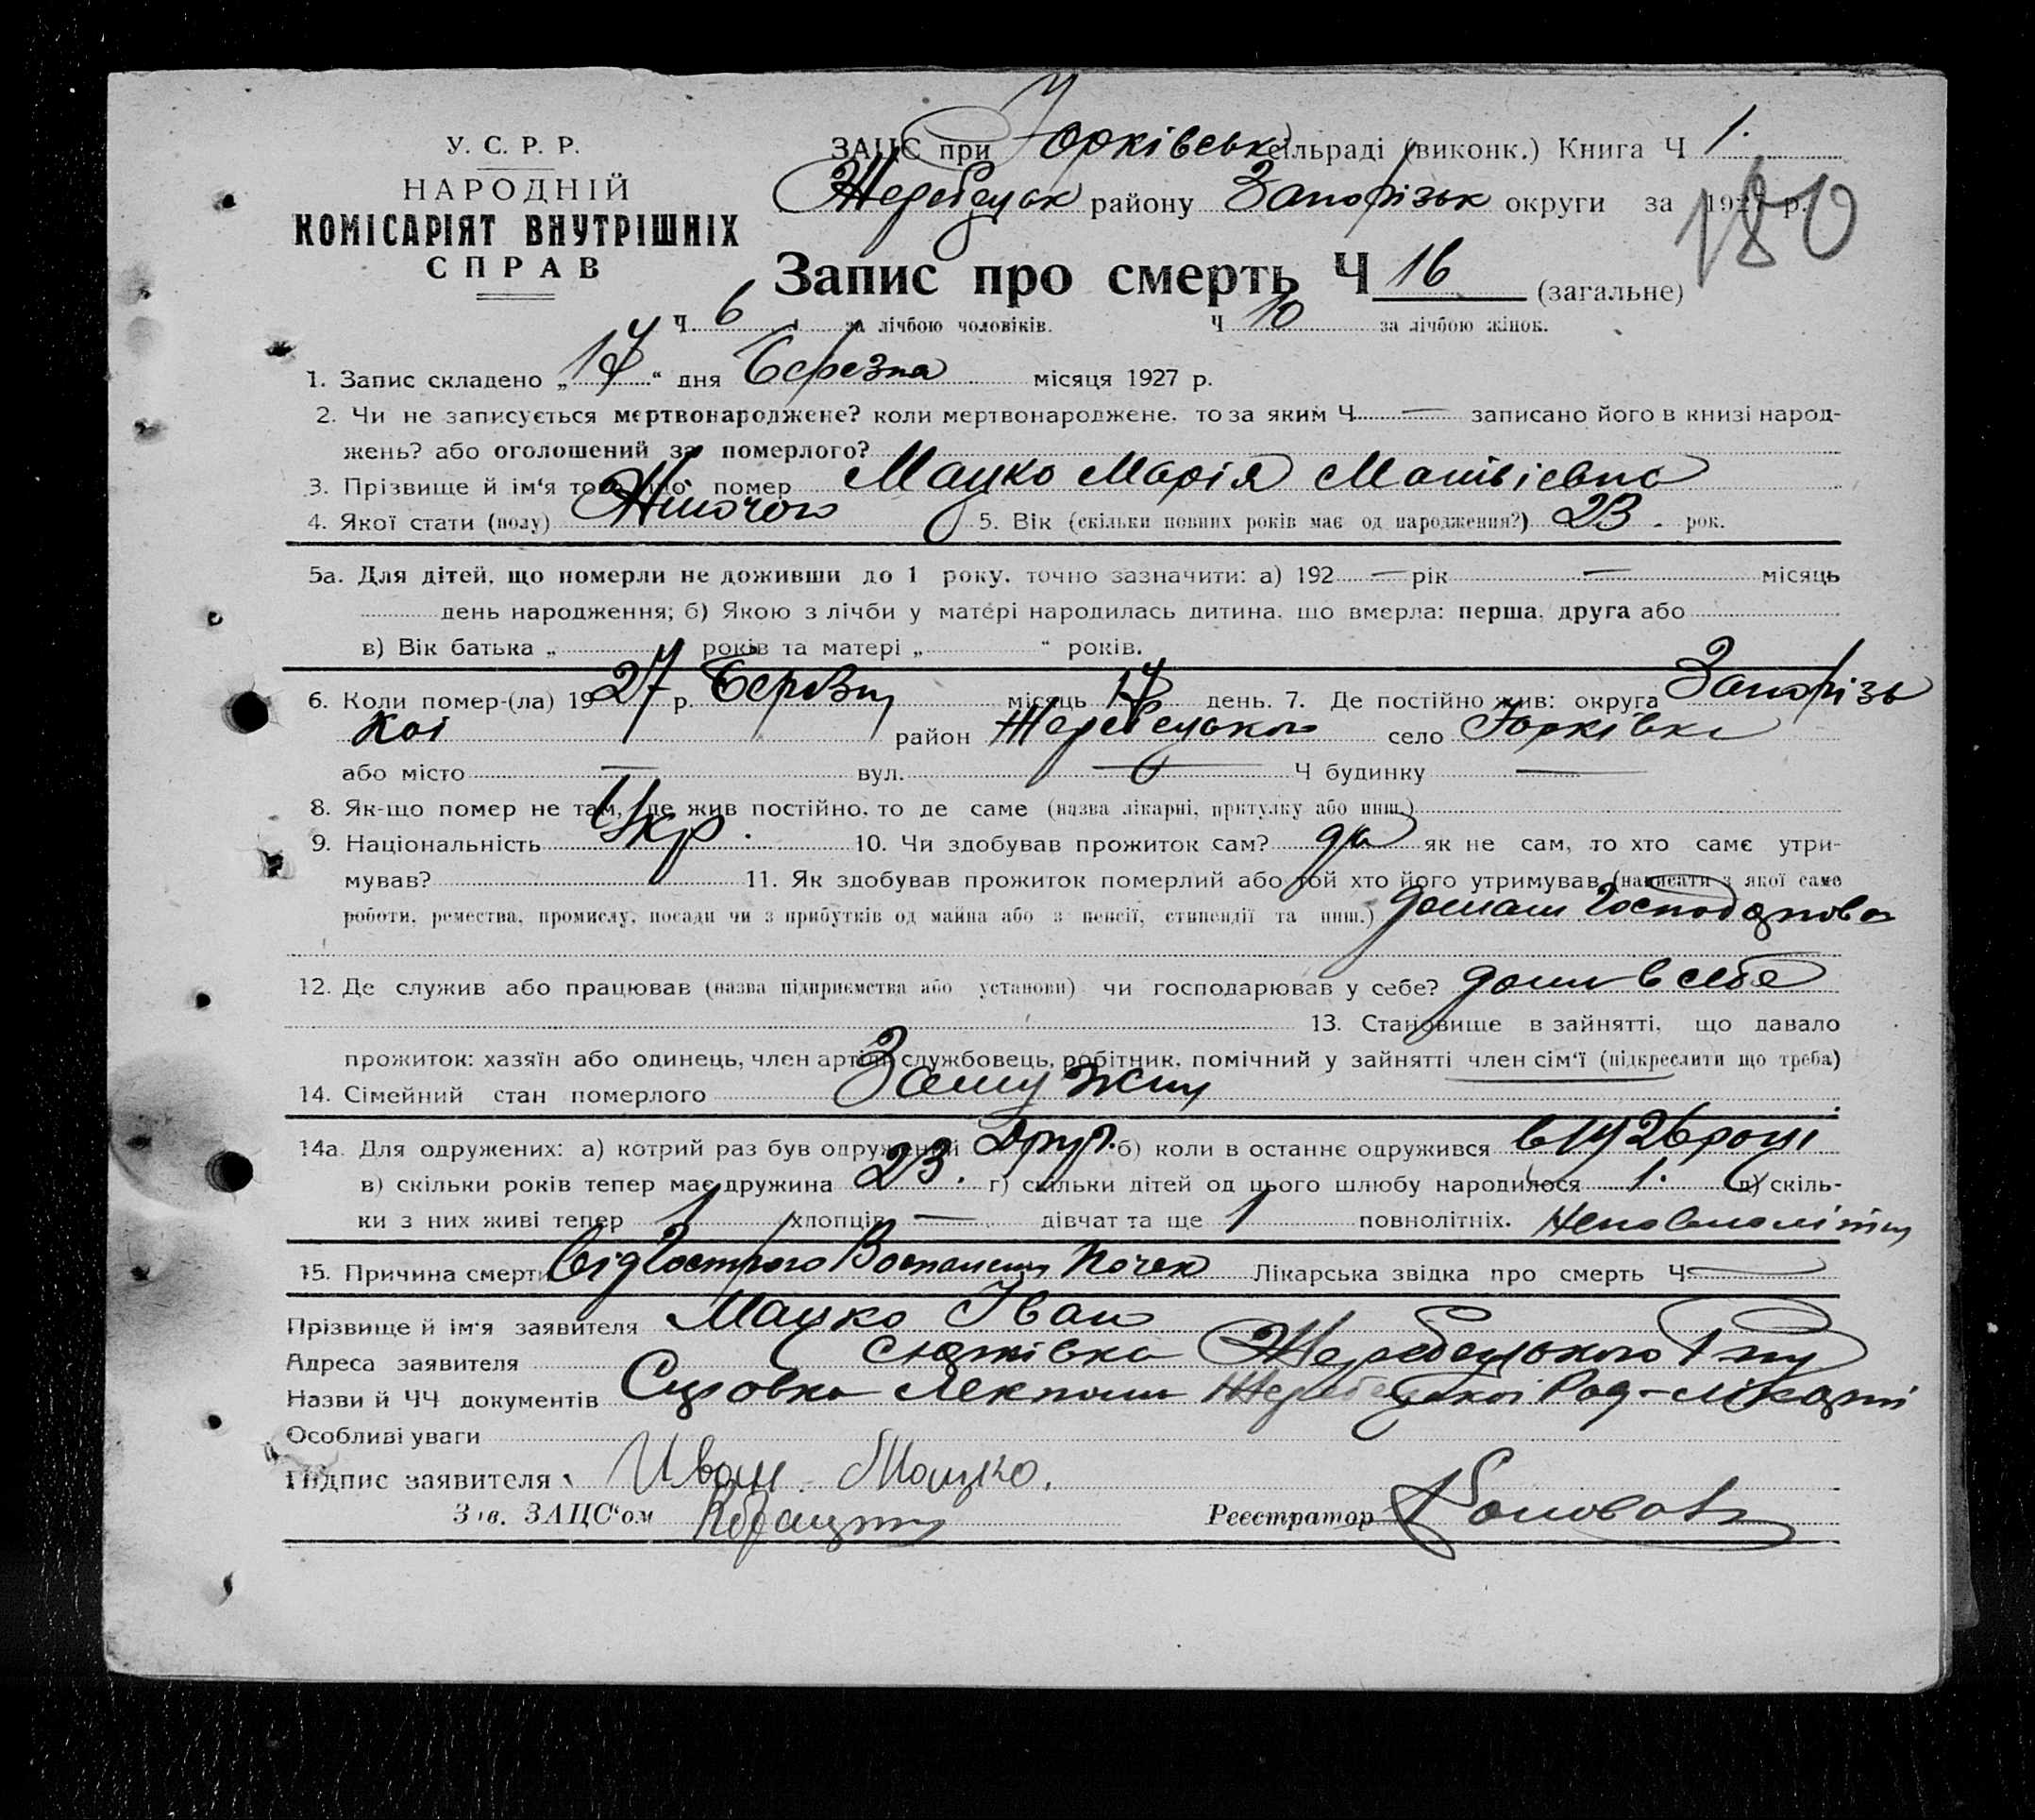 У. С. Р. Р.
НАРОДНІЙ
КОМІСАРІЯТ ВНУТРІШНІХ
СПРАВ
ЗАЦС при Юрківськ сільраді (виконк.) Книга Ч 1.
Жеребецьк району Запорізьк округи за 192 р.
180
Запис про смерть Ч 16 (загальне)
Ч 6 за лічбою чоловіків. Ч 10 за лічбою жінок.
1. Запис складено „17“ дня Березня місяця 1927 р.
2. Чи не записується мертвонароджене? коли мертвонароджене, то за яким Ч — записано його в книзі народ-
жень? або оголошений за померлого?
3. Прізвище й ім‘я того, що помер Мацко Марія Матвієвна
4. Якої стати (полу) Жіночого 5. Вік (скільки повних років має од народження?) 23. рок.
5а. Для дітей, що померли не доживши до 1 року, точно зазначити: а) 192 — рік — місяць
день народження; б) Якою з лічби у матері народилась дитина, що вмерла: перша, друга або
в) Вік батька „ років та матері „ “ років.
6. Коли помер-(ла) 1927 р. Березня місяць 17 день. 7. Де постійно жив: округа Запорізь
кої район Жеребецького село Юрківка
або місто — вул. — Ч будинку —
8. Як-що помер не там, де жив постійно, то де саме (назва лікарні, притулку або инш.)
9. Національність Укр. 10. Чи здобував прожиток сам? да як не сам, то хто саме утри-
мував? 11. Як здобував прожиток померлий або той хто його утримував (написати з якої само
роботи, ремества, промислу, посади чи з прибутків од майна або з пенсії, стипендії та инш.)
12. Де служив або працював (назва підприємства або установи) чи господарював у себе? дома в себе
13. Становище в зайнятті, що давало
прожиток: хазяїн або одинець, член артілі, службовець, робітник, помічний у зайнятті член сім‘ї (підкреслити що треба)
14. Сімейний стан померлого Замужня
14а. Для одружених: а) котрий раз був одружений Друг. б) коли в останнє одружився в 1926 році
в) скільки років тепер має дружина 23. г) скільки дітей од цього шлюбу народилося 1. д) скіль-
ки з них живі тепер 1 хлопців — дівчат та ще 1 повнолітніх.
15. Причина смерти Від Гострого Воспаления Почек Лікарська звідка про смерть Ч —
Прізвище й ім‘я заявителя Мацко Іван
Адреса заявителя Жеребецького
Назви й ЧЧ документів Жеребецької
Особливі уваги
Підпис заявителя Иван Мацко.
Зав. ЗАЦС‘ом Реєстратор